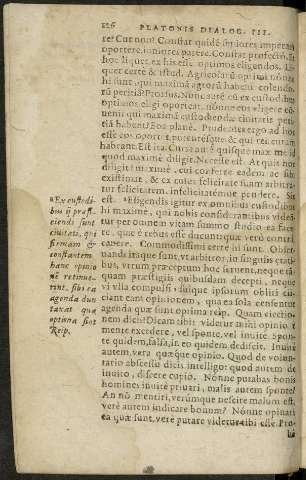 126 PLATONIS DIALOG. III.
re? Cur non? Constat quidẽ seniores imperare
oportere, iuniores parere. Constat profecto. Et
hoc liquet, ex his esse optimos eligendos. Li-
quet certe & istud. Agricolarũ optimi nónne
hi sunt, qui maxima agrorũ habent colendo-
rũ peritia? Prorsus. Nunc autẽ cũ ex custodibus
optimos eligi oporteat, nónne eos eligere cõ-
uenit qui maximã custodiendæ ciuitatis periti-
esse eos oportet, potentésque, & qui
habeant. Est ita. autẽ quisque max. me id
quod maximè diligit. Necesse est. At quis hoc
diligit maximè, cui conferre eadem ac sibi
existimat, & ex cuius felicitate suam arbitra-
tur felicitatem, infelicitatémue pendere. Sic
est. Eligendi igitur ex omnibus custodibus
hi maximè, qui nobis considerantibus videã-
tur per omnem vitam summo studio ea face-
re, quæ è rebus esse ducant: quæ verò contrà,
cauere. Commodissimi certè hi sunt. Obser-
uandi itaque sunt, vt arbitror, in singulis ætati-
bus, vtrum præceptum hoc seruent, neque tã-
quam præstigiis quibusdam decepti, neque
vi vlla compulsi, suíque ipsorum obliti eii-
ciant eam opinionem, qua ea sola censentur
agenda quæ sunt optima reip. Quam eiectio-
nem dicis? Dicam tibi. videtur mihi opinio è
mente excedere, vel sponte, vel inuitè. Spon-
te quidem, falsa, in eo quidem dedidicit. Inuitè
autem, vera quæque opinio. Quod de volun-
tario abscessu dicis intelligo: quod autem de
inuito, discere cupio. Nónne putabas bonis
homines inuitè priuari, malis autem sponte?
An nõ mentiri, verúmque nescire malum est,
verè autem iudicare bonum? Nónne opinari
ea quæ sunt, verè putare videtur tibi esse? Pro-
Ex custodi-
bus ij præfi-
ciendi sunt
ciuitati, qui
firmam &
constantem
hanc opinio-
nẽ retinue-
rint, sibi ea
agenda dun-
taxat quæ
optima sint
Reip.